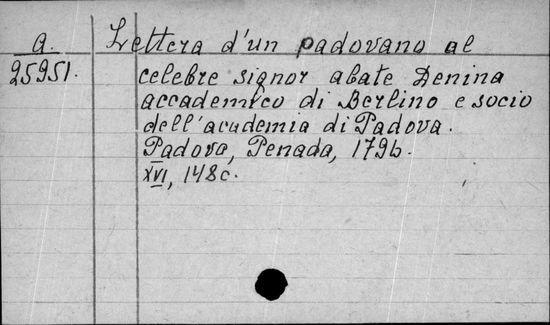 a. Lettera d'un padovano al
25951. celebre signor abate Denina
accademico di Berlino e socio
dell'academia di Padova.
Padova, Penada, 1796.
XVI, 148c.